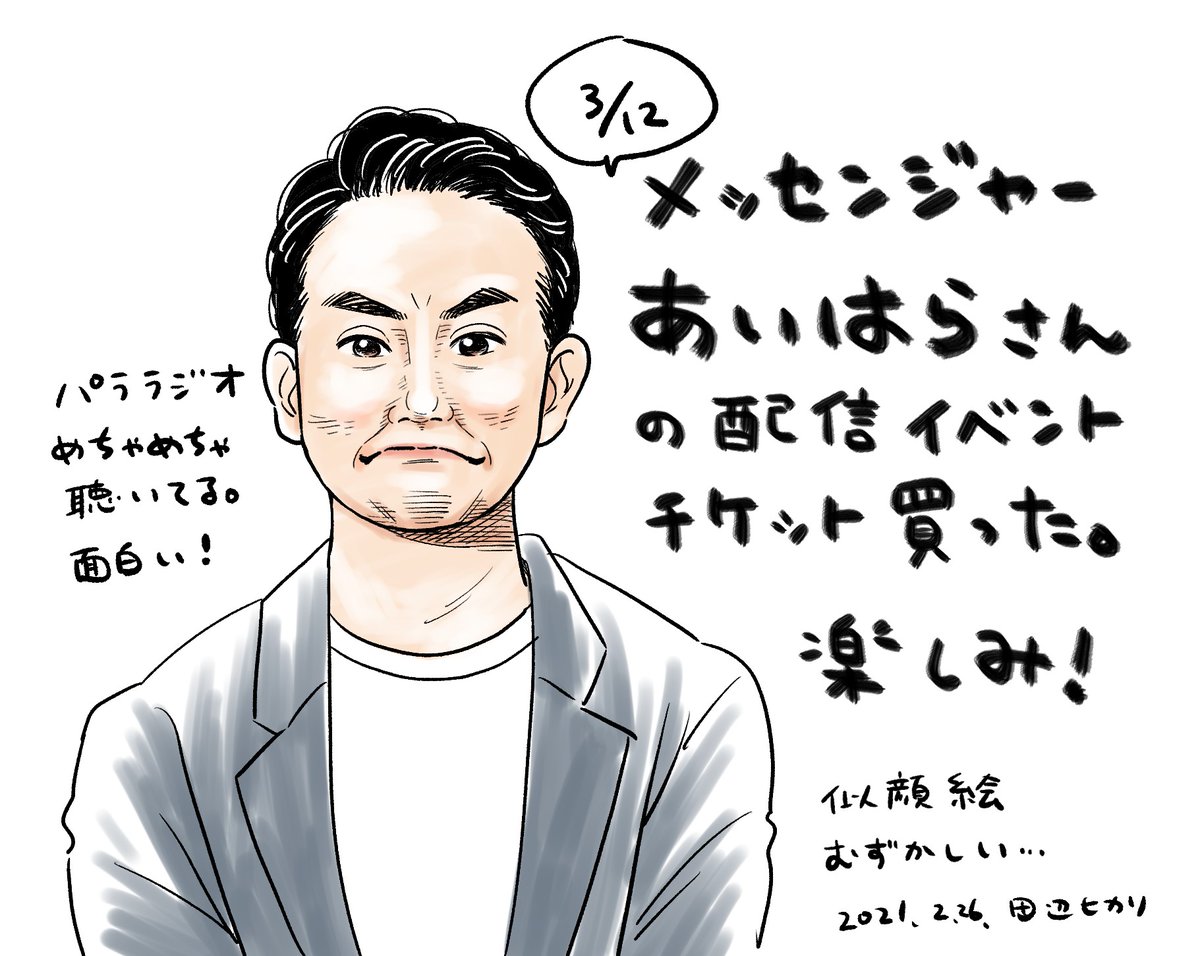 3/12
メッセンジャー
あいはらさん
の配信イベント
チケット買った。
楽しみ!
パララジオ
めちゃめちゃ
聴いてる。
面白い!
似顔絵
むずかしい…
2021.2.26.田辺ヒカリ